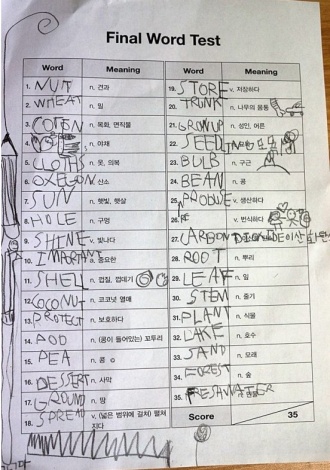 Final Word Test
Word Meaning
1. NUT n. 견과
2. WHEAT n. 밀
3. COTON n. 목화, 면직물
4. n. 야채
5. CLOTHS n. 옷, 의복
6. OXEGEN n. 산소
7. SUN n. 햇빛, 햇살
8. HOLE n. 구멍
9. SHINE v. 빛나다
10. IMPORTANT a. 중요한
11. SHELL n. 껍질, 껍데기
12. COCONUT n. 코코넛 열매
13. PROTECT v. 보호하다
14. POD n. (콩이 들어있는) 꼬투리
15. PEA n. 콩
16. DESSERT n. 사막
17. GROUND n. 땅
18. SPREAD v. (넓은 범위에 걸쳐) 펼쳐
지다
Word Meaning
19. STORE v. 저장하다
20. TRUNK n. 나무의 몸통
21. GROWUP n. 성인, 어른
22. SEED n.
23. BULB n. 구근
24. BEAN n. 콩
25. PRODUSE v. 생산하다
26. v. 번식하다
27. CARBON DIOXIDE 이산화탄소
28. ROOT n. 뿌리
29. LEAF n. 잎
30. STEM n. 줄기
31. PLANT n. 식물
32. LAKE n. 호수
33. SAND n. 모래
34. FOREST n. 숲
35. FRESHWATER n. 민물
Score 35